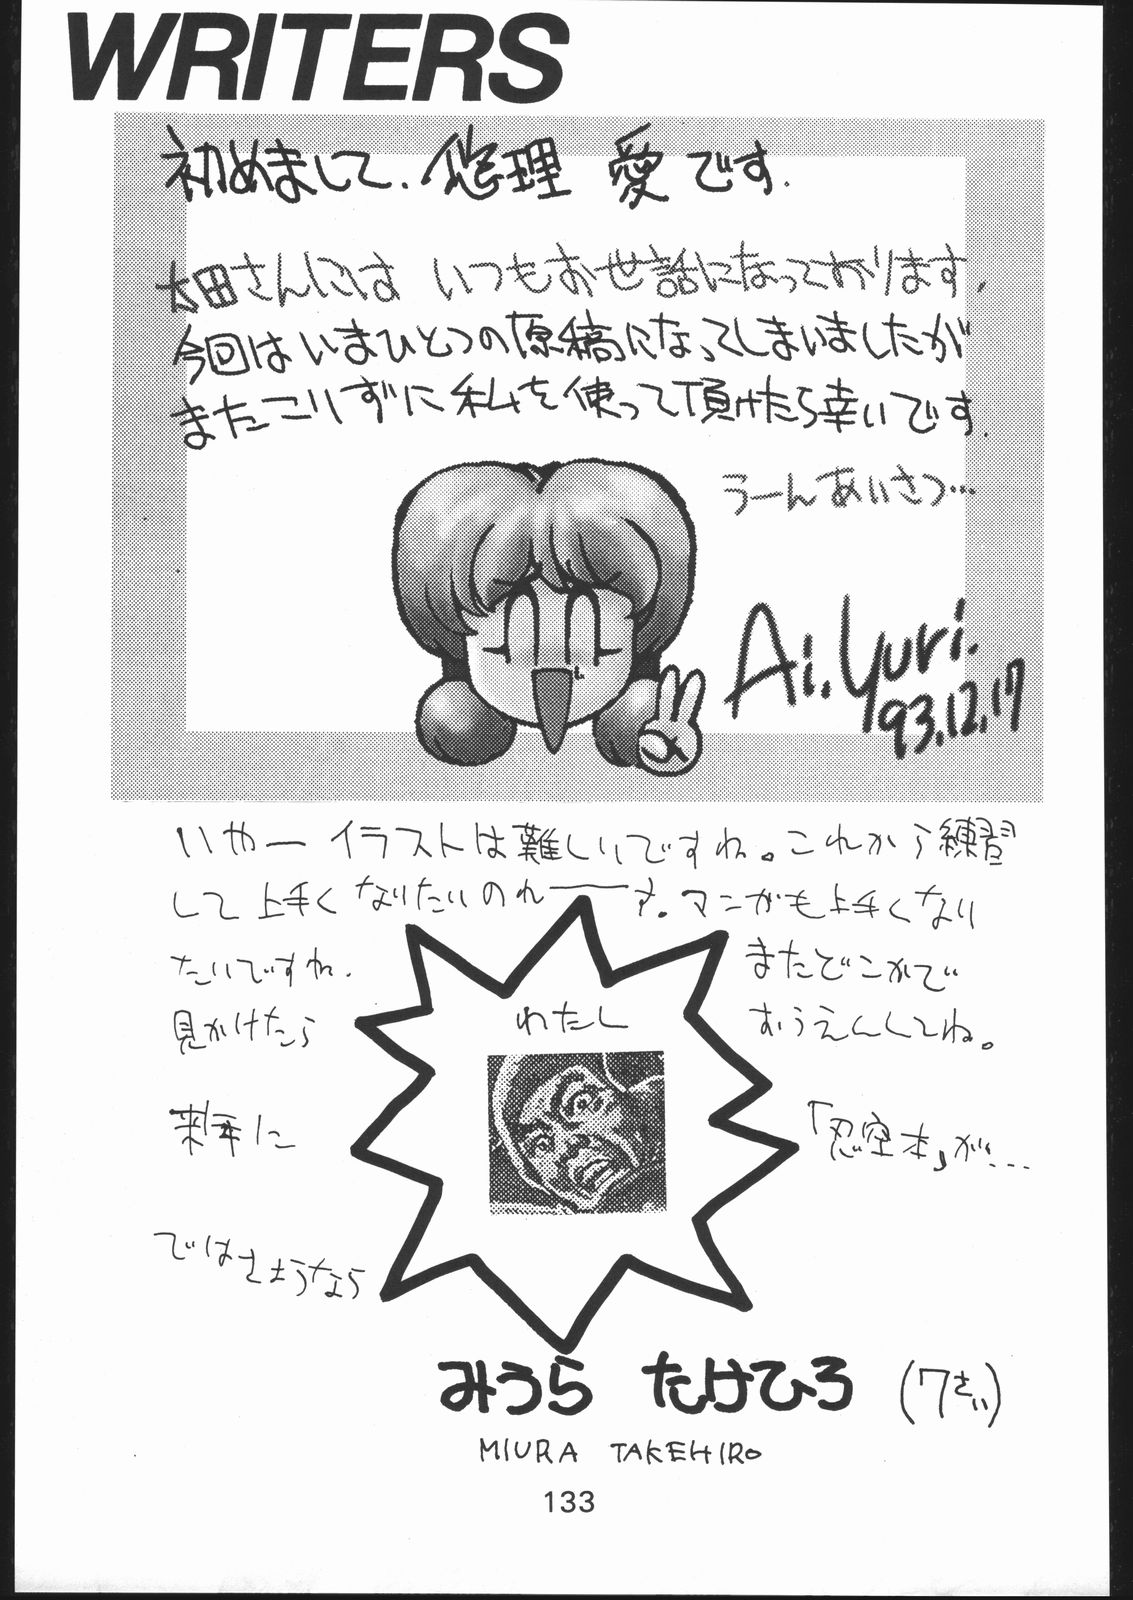 WRITERS
初めまして、悠理 愛です.
太田さんには いつもお世話になっております.
今回はいまひとつの原稿になってしまいましたが
またこりずに私を使って頂けたら幸いです.
うーんあいさつ…
Ai.Yuri.
93.12.17
いやー イラストは難しいですね。これから練習
して上手くなりたいのれーーす。マンガも上手くなり
たいですね.
またどこかで
見かけたら
おうえんしてね。
わたし
来年に
「忍空本」が…
ではさようなら
みうら たけひろ (7さい)
MIURA TAKEHIRO
133